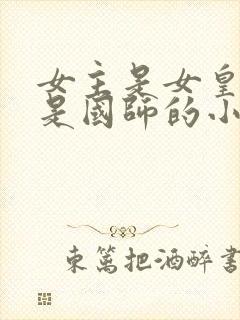 女主是女皇
是國師的小
東篱把酒醉書